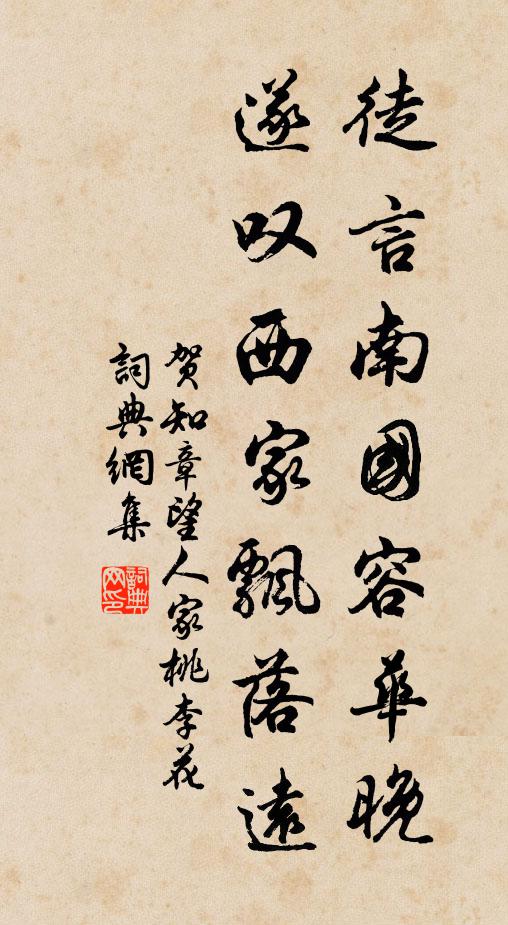 徒言南國容華晚
遂叹西家飄落遠
贺知章望人家桃李花
詞典網集
詞典网印